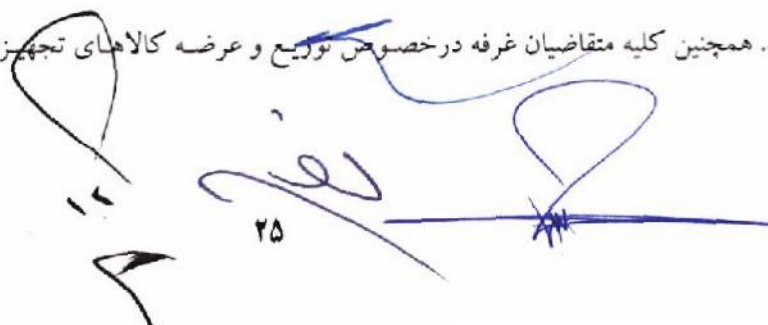 . همچنین کلیه متقاضیان غرفه درخصوص توزیع و عرضه کالاهای تجهیز
۲۵